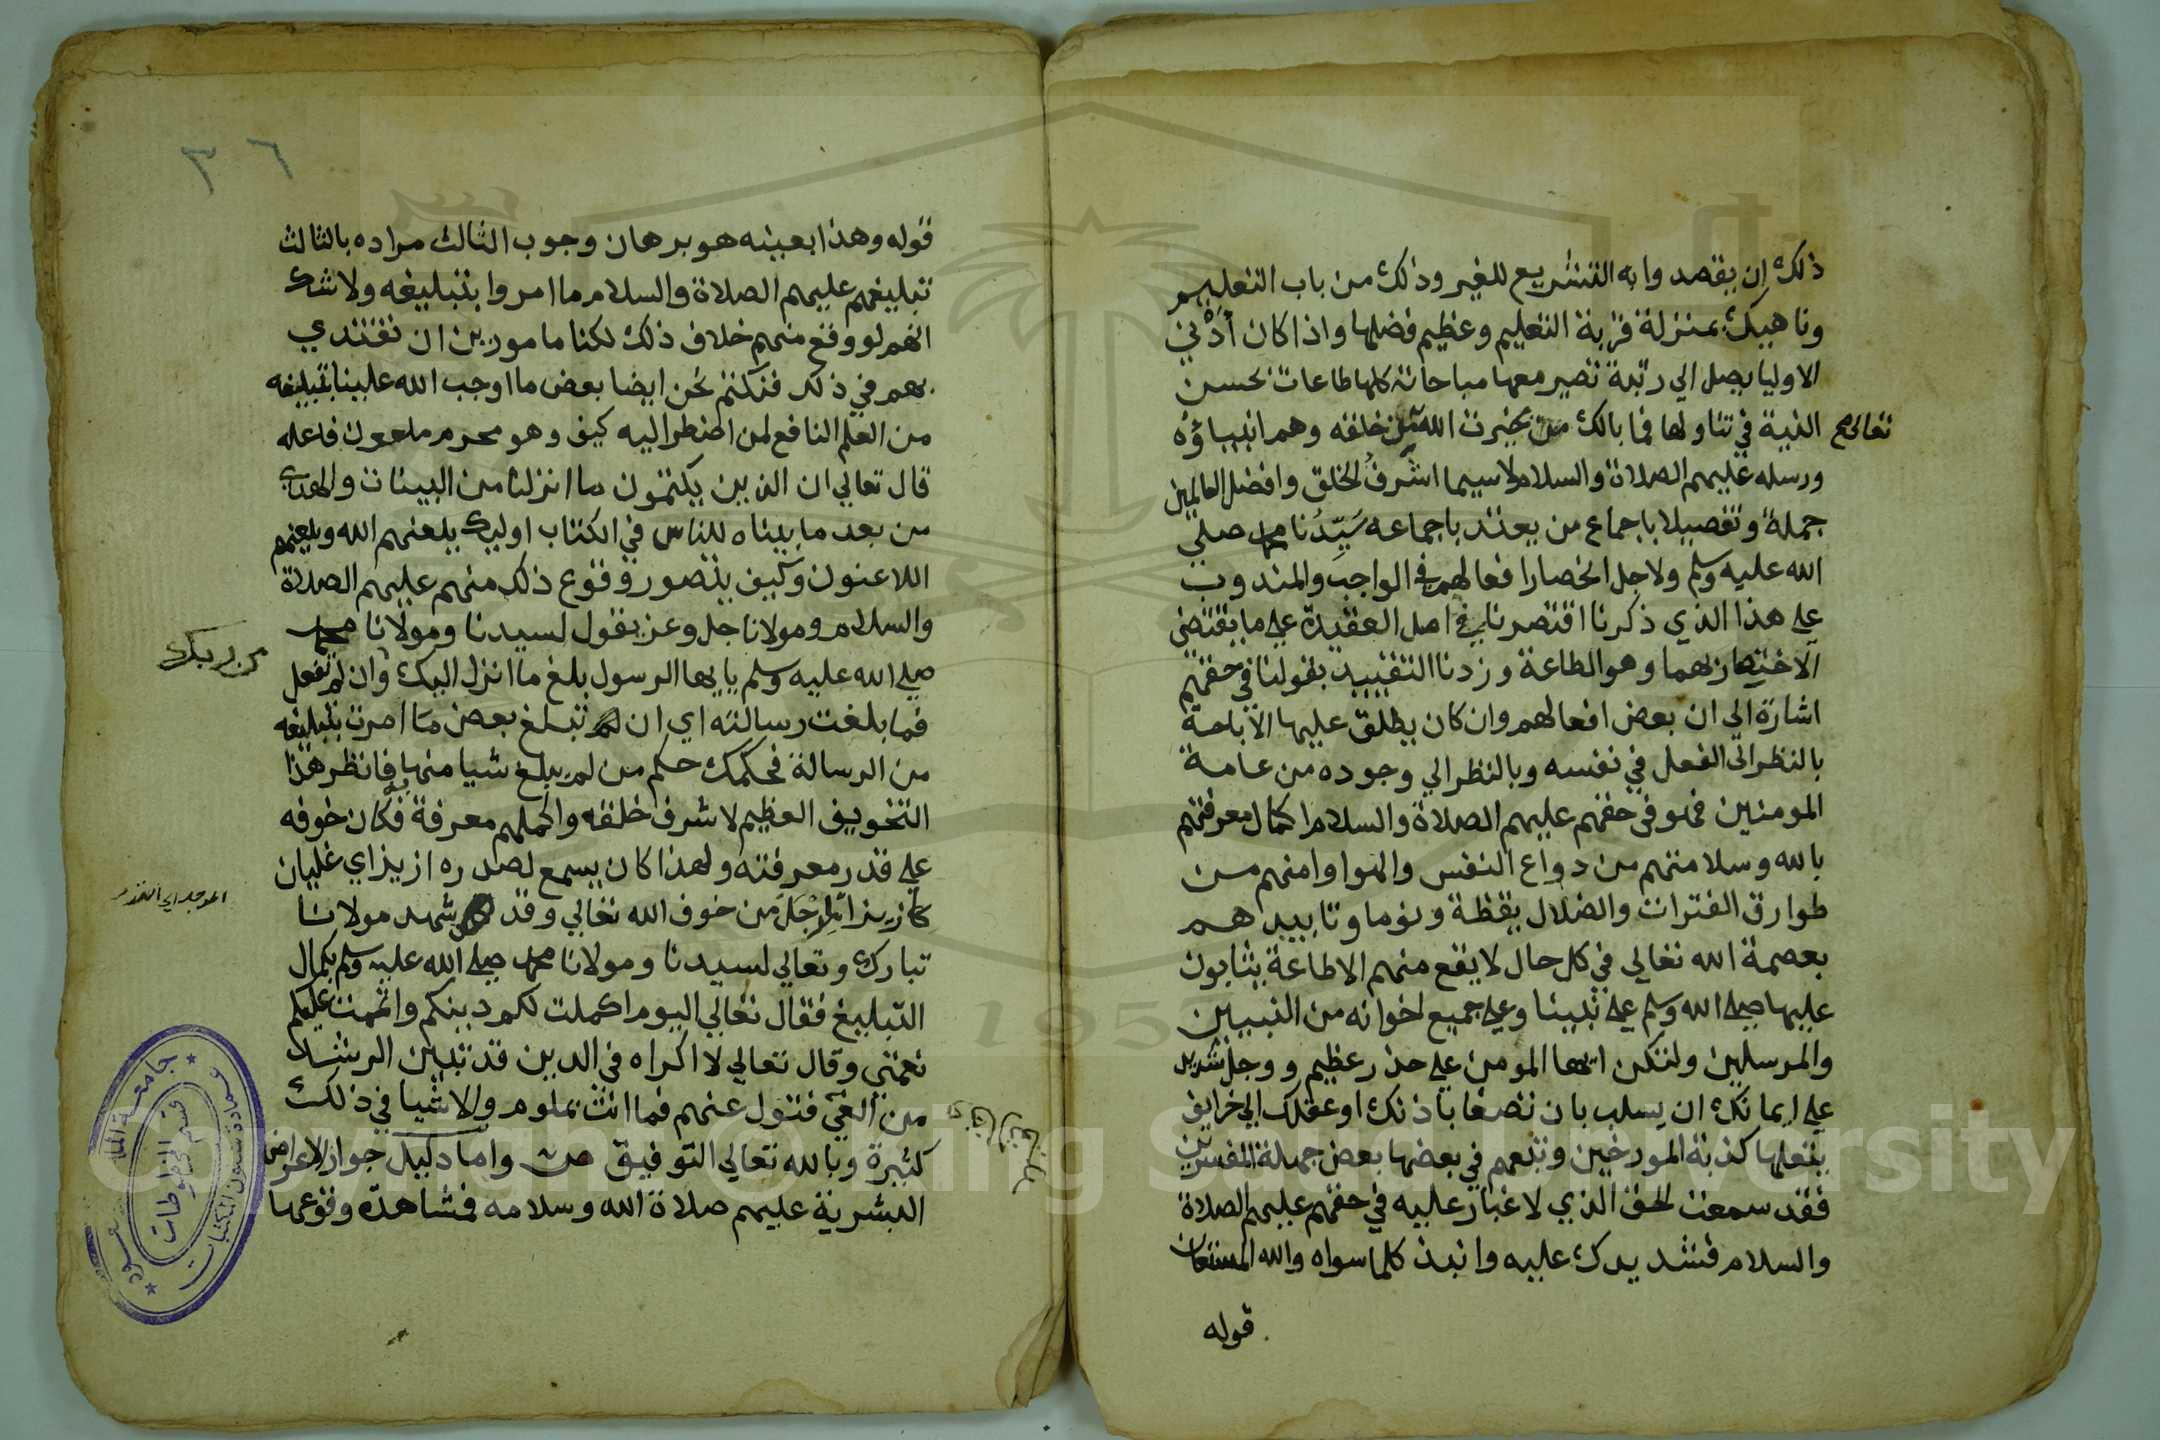 ذلك ان يقصدوا به التشريع للغير وذلك من باب التعليم
وناهيك بمنزلة قربة التعليم وعظيم فضلها واذا كان أدْني
الاوليا يصل الي رتبة تصير معها مباحاته كلها طاعات بحسن
النية في تناولها فما بالك بخيرت الله من خلقه وهم انبياؤه
تعالى صح
ورسله عليهم الصلاة والسلام لاسيما اشرفُ الخلق وافضل العالمين
جملة وتفصيلا باجماع من يعتد باجماعه سَيّدُنا محمد صلي
الله عليه وسلم ولاجل انحصار افعالهم في الواجب والمندوب
علي هذا الذي ذكرنا اقتصرنا في اصل العقيدة علي ما يقتضي
الاختصار بهما وهو الطاعة وزدنا التقييد بقولنا في حقهم
اشارة الي ان بعض افعالهم وان كان يطلق عليها الاباحة
بالنظر الى الفعل في نفسه وبالنظر الي وجوده من عامة
المومنين فهو في حقهم عليهم الصلاة والسلام لكمال معرفتهم
بالله وسلامتهم من دواع النفس والهوا وامنهم من
طوارق الفترات والضلال يقظة ونوما وتاييدهم
بعصمة الله تعالي في كل حال لا يقع منهم الا طاعة يثابون
عليها صلي الله وسلم علي نبينا وعلي جميع اخوانه من النبيين
والمرسلين ولتكن ايها المومن علي حذر عظيم ووجل شديد
علي ايمانك ان يسلب بان تصغا باذنك او عقلك الي خرايق
ينقلها كذبة المورخين وتبعهم في بعضها بعض جملة المفسرين
فقد سمعت الحق الذي لا غبار عليه في حقهم عليهم الصلاة
والسلام فشد يدك عليه وانبذ كلما سواه والله المستعان
قوله
٣٦
قوله وهذا بعينه هو برهان وجوب الثالث مراده بالثالث
تبليغهم عليهم الصلاة والسلام ما امروا بتبليغه ولا شك
انهم لو وقع منهم خلاف ذلك لكنا مامورين ان نقتدي
بهم في ذلك فنكتم نحن ايضا بعض ما اوجب الله علينا تبليغه
من العلم النافع لمن اضطر اليه كيف وهو محرم ملعون فاعله
قال تعالي ان الذين يكتمون ما انزلنا من البينات والهدي
من بعد ما بيناه للناس في الكتاب اوليك يلعنهم الله ويلعنهم
اللاعنون وكيف يتصور وقوع ذلك منهم عليهم الصلاة
والسلام ومولانا جل وعز يقول لسيدنا ومولانا محمد
صلي الله عليه وسلم يايها الرسول بلغ ما انزل اليك وان لم تفعل
من ربك
فما بلغت رسالته اي ان لم تبلغ بعض ما امرت بتبليغه
من الرسالة فحكمك حكم من لم يبلغ شيا منها فانظر هذا
التخويف العظيم لاشرف خلقه واكملهم معرفة فكان خوفه
علي قدر معرفته ولهذا كان يسمع لصدره ازيز اي غليان
كازيز المرجل من خوف الله تعالي وقد شهد مولانا
المرجل اي القدر
تبارك وتعالي لسيدنا ومولانا محمد صلي الله عليه وسلم بكمال
التبليغ فقال تعالي اليوم اكملت لكم دينكم واتممت عليكم
نعمتي وقال تعالي لا اكراه في الدين قد تبين الرشد
من الغي فتول عنهم فما انت بملوم والاشيا في ذلك
كثيرة وبالله تعالي التوفيق ص واما دليل جواز الاعراض
البشرية عليهم صلاة الله وسلامه فمشاهدة وقوعها
جامعة الملك سعود
عمادة شئون المكتبات
قسم المخطوطات
1957
Copyright © King Saud University